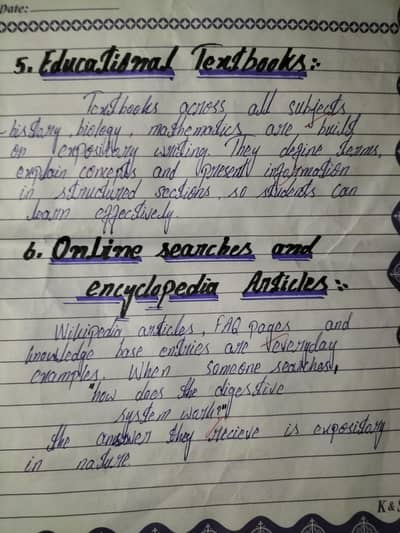 Date:
5. Educational Textbooks:-
Textbooks across all subjects
history, biology, mathematics are built
on expository writing. They define terms,
explain concepts and present information
in structured sections, so students can
learn effectively.
6. Online searches and
encyclopedia Articles:-
Wikipedia articles, FAQ pages and
knowledge base entries are everyday
examples. When someone searches,
"how does the digestive
system work?"
the answer they recieve is expository
in nature.
K&S